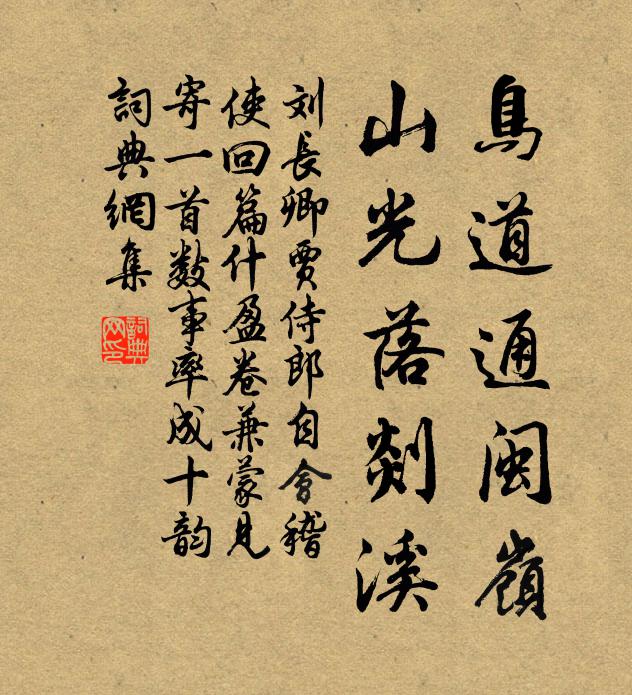 鳥道通闽嶺
山光落剡溪
刘長卿賈侍郎自會稽
使回篇什盈卷兼蒙見
寄一首數事率成十韵
詞典網集
詞典网印